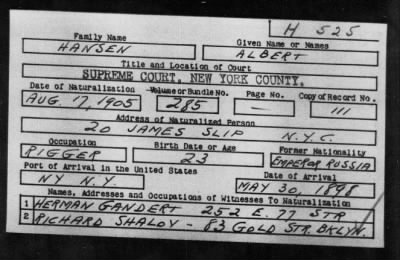 H 525
Family Name Given Name or Names
HANSEN ALBERT
Title and Location of Court
SUPREME COURT, NEW YORK COUNTY.
Date of Naturalization Volume or Bundle No. Page No. Copy of Record No.
AUG. 17, 1905 285 — 111
Address of Naturalized Person
20 JAMES SLIP N.Y.C.
Occupation Birth Date or Age Former Nationality
RIGGER 23 EMPEROR RUSSIA
Port of Arrival in the United States Date of Arrival
NY N.Y. MAY 30, 1898
Names, Addresses and Occupations of Witnesses To Naturalization
1 HERMAN GANDERT 252 E. 77 STR
2 RICHARD SHALOY - 83 GOLD STR. BKLYN.